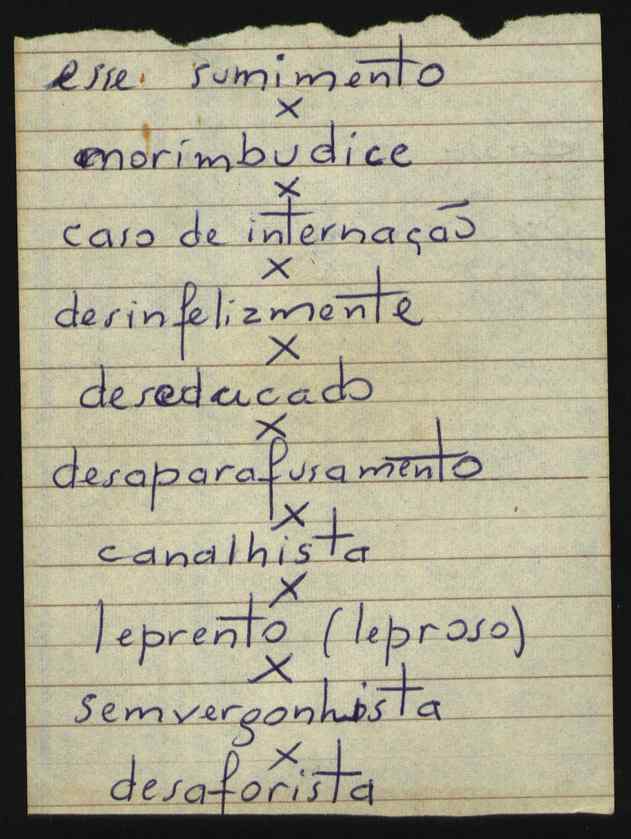 esse sumimento
x
morimbudice
x
caso de internação
x
desinfelizmente
x
desedacado
x
desaparafusamento
x
canalhista
x
leprento (leproso)
x
semvergonhista
x
desaforista